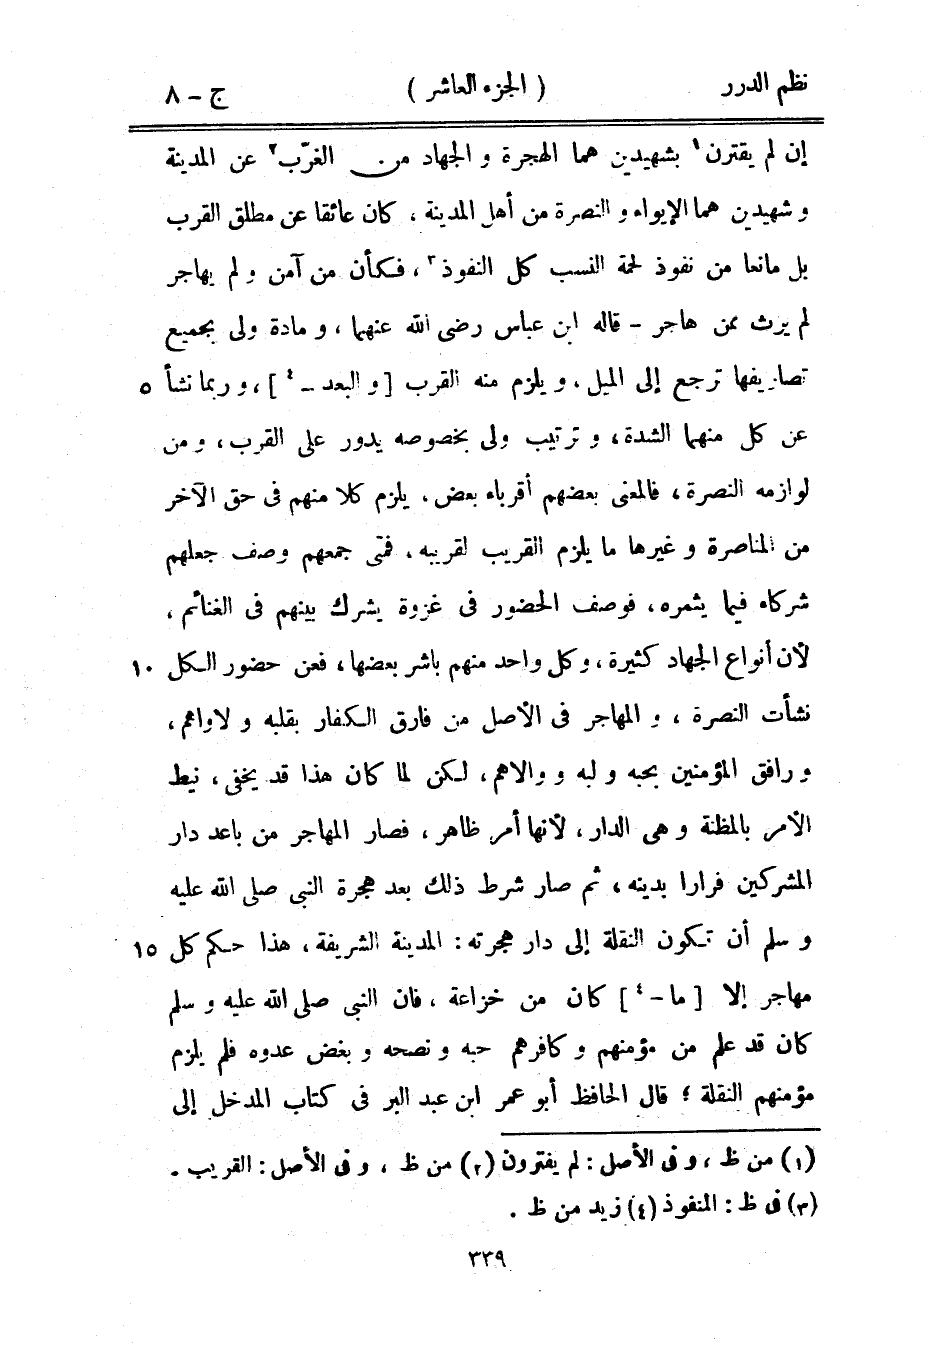 نظم الدرر ( الجزء العاشر ) ج - ٨
إن لم يقترن١ بشهيدين هما الهجرة و الجهاد من الغرّب٢ عن المدينة
و شهيدين هما الإيواء و النصرة من أهل المدينة ، كان عائقا عن مطلق القرب
بل مانعا من نفوذ لحمة النسب كل النفوذ٣ ، فكأن من آمن و لم يهاجر
لم يرث ممن هاجر - قاله ابن عباس رضى الله عنهما ، و مادة ولى بجميع
تصاريفها ترجع إلى الميل ، و يلزم منه القرب [ و البعد - ٤ ] ، و ربما نشأ ٥
عن كل منهما الشدة ، و ترتيب ولى بخصوصه يدور على القرب ، و من
لوازمه النصرة ، فالمعنى بعضهم أقرباء بعض ، يلزم كلا منهم فى حق الآخر
من المناصرة و غيرها ما يلزم القريب لقريبه ، فمتى جمعهم وصف جعلهم
شركاء فيما يثمره ، فوصف الحضور فى غزوة يشرك بينهم فى الغنائم ،
لأن أنواع الجهاد كثيرة ، و كل واحد منهم باشر بعضها ، فعن حضور الكل ١٠
نشأت النصرة ، و المهاجر فى الأصل من فارق الكفار بقلبه و لاواهم ،
و رافق المؤمنين بحبه و لبه و والاهم ، لكن لما كان هذا قد يخفى ، نيط
الأمر بالمظنة و هى الدار ، لأنها أمر ظاهر ، فصار المهاجر من باعد دار
المشركين فرارا بدينه ، ثم صار شرط ذلك بعد هجرة النبى صلى الله عليه
و سلم أن تكون النقلة إلى دار هجرته : المدينة الشريفة ، هذا حكم كل ١٥
مهاجر إلا [ ما - ٤ ] كان من خزاعة ، فان النبى صلى الله عليه و سلم
كان قد علم من مؤمنهم و كافرهم حبه و نصحه و بغض عدوه فلم يلزم
مؤمنهم النقلة ؛ قال الحافظ أبو عمر ابن عبد البر فى كتاب المدخل إلى
(١) من ظ ، و فى الأصل : لم يفترون (٢) من ظ ، و فى الأصل : القريب .
(٣) فى ظ : المنفوذ (٤) زيد من ظ .
٣٣٩